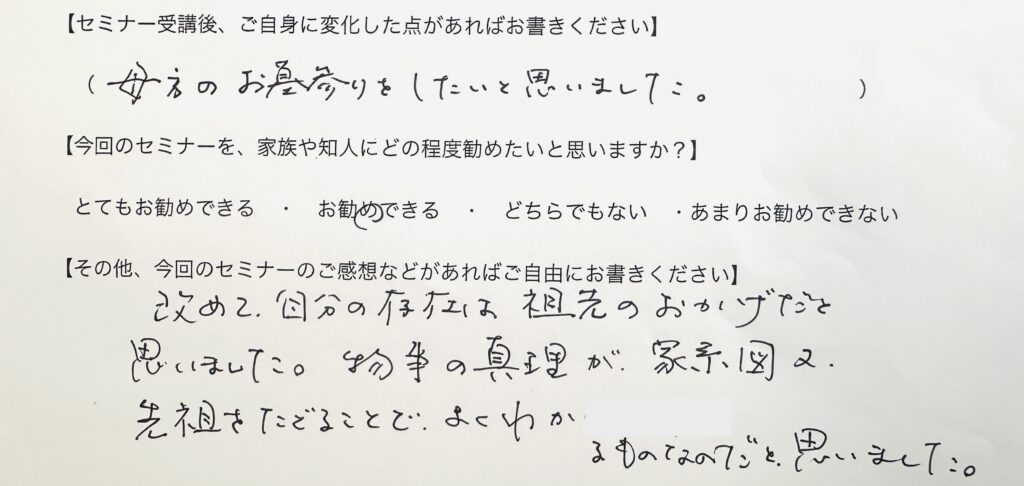 【セミナー受講後、ご自身に変化した点があればお書きください】
（ 母方のお墓参りをしたいと思いました。 ）
【今回のセミナーを、家族や知人にどの程度勧めたいと思いますか？】
とてもお勧めできる ・ お勧めできる ・ どちらでもない ・あまりお勧めできない
【その他、今回のセミナーのご感想などがあればご自由にお書きください】
改めて、自分の存在は祖先のおかげだと
思いました。物事の真理が、家系図で、
先祖をたどることで、よくわか
るものなのだと、思いました。